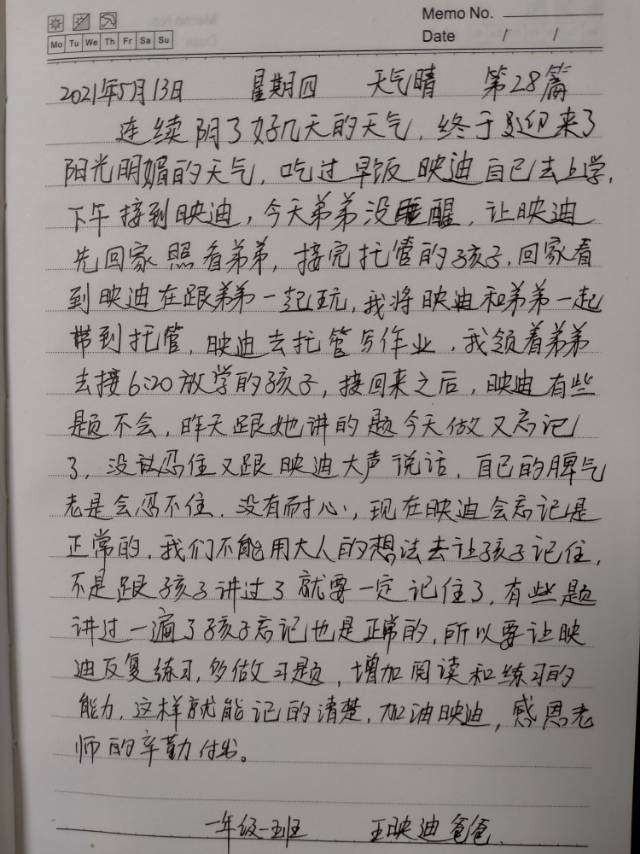 Memo No.
Mo Tu We Th Fr Sa Su
Date / /
2021年5月13日 星期四 天气晴 第28篇
连续阴了好几天的天气,终于迎来了
阳光明媚的天气,吃过早饭映迪自己去上学,
下午接到映迪,今天弟弟没睡醒,让映迪
先回家照看弟弟,接完托管的孩子,回家看
到映迪在跟弟弟一起玩,我将映迪和弟弟一起
带到托管,映迪去托管写作业,我领着弟弟
去接6:20放学的孩子,接回来之后,映迪有些
题不会,昨天跟她讲的题今天做又忘记
了,没忍住又跟映迪大声说话,自己的脾气
老是会忍不住,没有耐心,现在映迪会忘记是
正常的,我们不能用大人的想法去让孩子记住,
不是跟孩子讲过了就要一定记住了,有些题
讲过一遍了孩子忘记也是正常的,所以要让映
迪反复练习,多做习题,增加阅读和练习的
能力,这样就能记的清楚,加油映迪,感恩老
师的辛勤付出。
一年级一班 王映迪爸爸